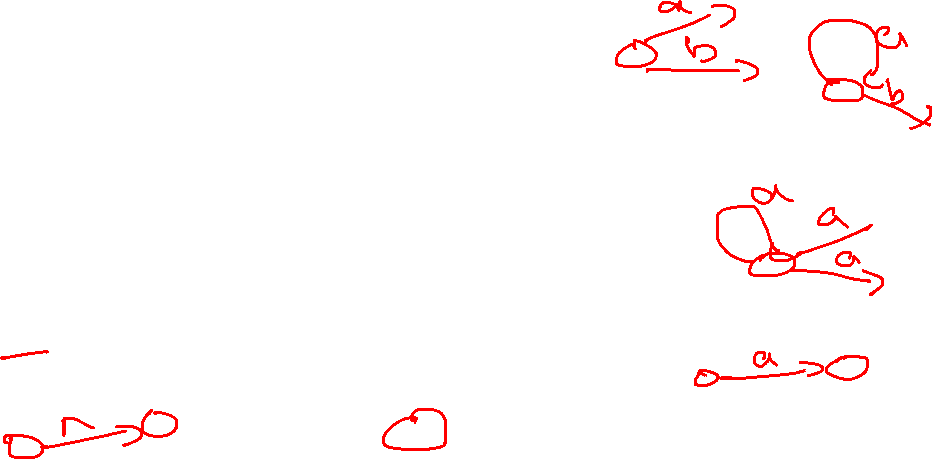 a
b
a
b
a
a
a
a